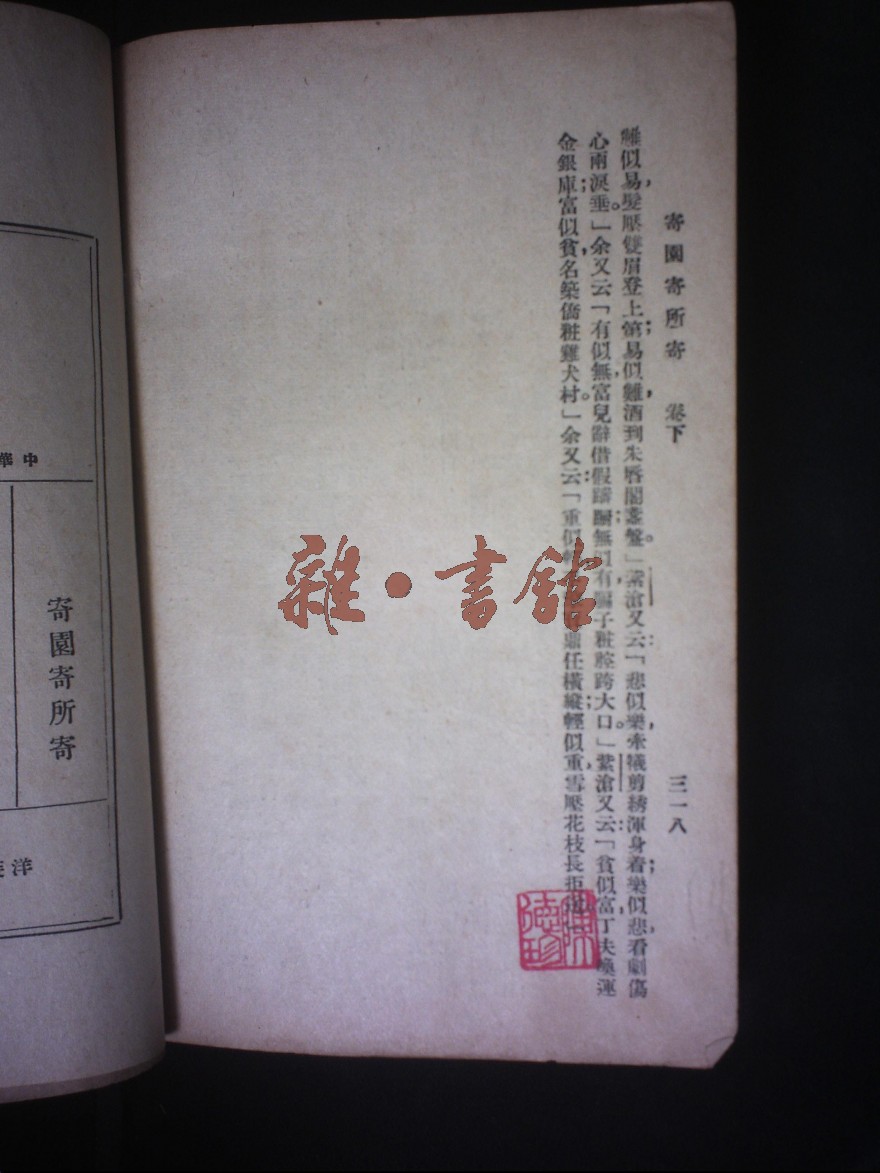 寄園寄所寄 卷下 三一八
難似易，髮壓雙眉登上第；易似難，酒到朱唇閣盞盤。」紫滄又云：「悲似樂，牽犧剪綉渾身着；樂似悲，看劇傷
心兩淚垂。」余又云：「有似無，富兒辭借假躊躕；無似有，騙子粧腔誇大口。」紫滄又云：「貧似富，丁夫喚運
金銀庫；富似貧，名築僑粧雞犬村。」余又云：「重似輕，鼎任橫縱；輕似重，雪壓花枝長拒
陳德珍
雜·書館
中華
寄園寄所寄
洋